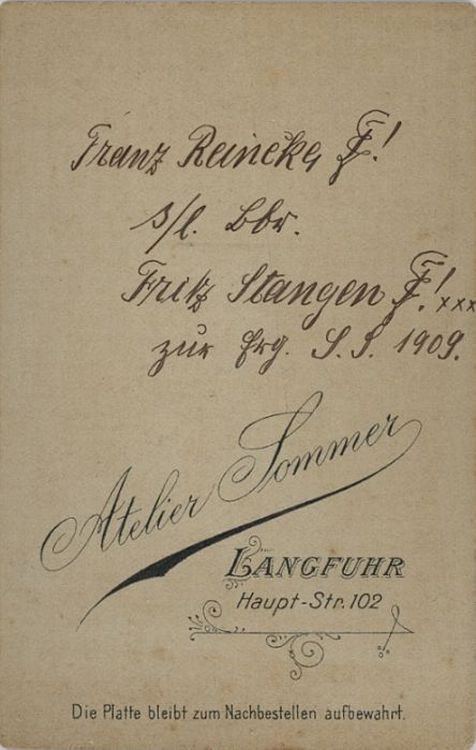 Franz Reineke, F!
s/l. Bbr.
Fritz Stangen F! xxx
zur Erg. S. S. 1909.
Atelier Sommer
LANGFUHR
Haupt-Str. 102
Die Platte bleibt zum Nachbestellen aufbewahrt.